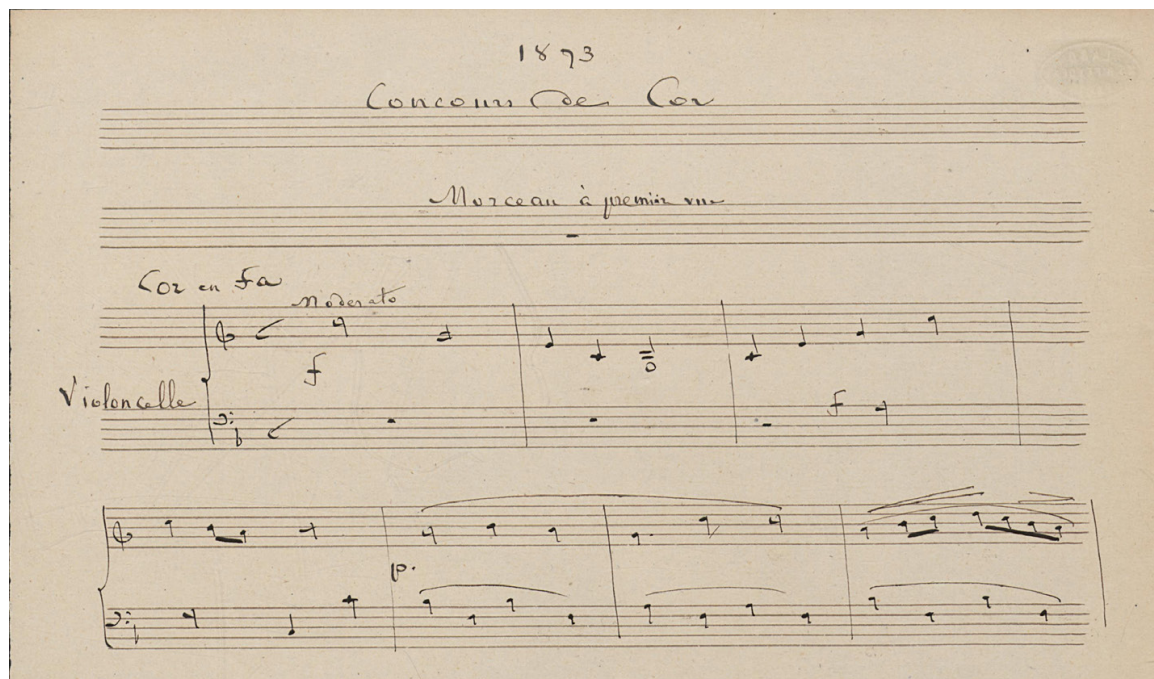 1873
Concours de Cor
Morceau à première vue
Cor en fa
Moderato
f
Violoncelle
f
p.